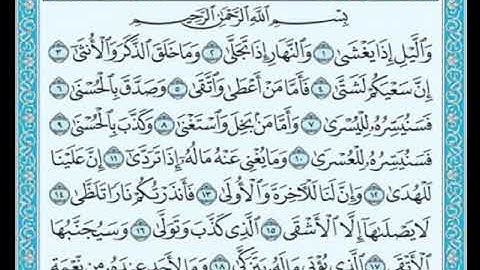 بِسْمِ اللَّهِ الرَّحْمَٰنِ الرَّحِيمِ
وَاللَّيْلِ إِذَا يَغْشَىٰ ١ وَالنَّهَارِ إِذَا تَجَلَّىٰ ٢ وَمَا خَلَقَ الذَّكَرَ وَالْأُنثَىٰ ٣
إِنَّ سَعْيَكُمْ لَشَتَّىٰ ٤ فَأَمَّا مَنْ أَعْطَىٰ وَاتَّقَىٰ ٥ وَصَدَّقَ بِالْحُسْنَىٰ ٦
فَسَنُيَسِّرُهُ لِلْيُسْرَىٰ ٧ وَأَمَّا مَن بَخِلَ وَاسْتَغْنَىٰ ٨ وَكَذَّبَ بِالْحُسْنَىٰ ٩
فَسَنُيَسِّرُهُ لِلْعُسْرَىٰ ١٠ وَمَا يُغْنِي عَنْهُ مَالُهُ إِذَا تَرَدَّىٰ ١١ إِنَّ عَلَيْنَا
لَلْهُدَىٰ ١٢ وَإِنَّ لَنَا لَلْآخِرَةَ وَالْأُولَىٰ ١٣ فَأَنذَرْتُكُمْ نَارًا تَلَظَّىٰ ١٤
لَا يَصْلَاهَا إِلَّا الْأَشْقَى ١٥ الَّذِي كَذَّبَ وَتَوَلَّىٰ ١٦ وَسَيُجَنَّبُهَا
الْأَتْقَى ١٧ الَّذِي يُؤْتِي مَالَهُ يَتَزَكَّىٰ ١٨ وَمَا لِأَحَدٍ عِندَهُ مِن نِّعْمَةٍ